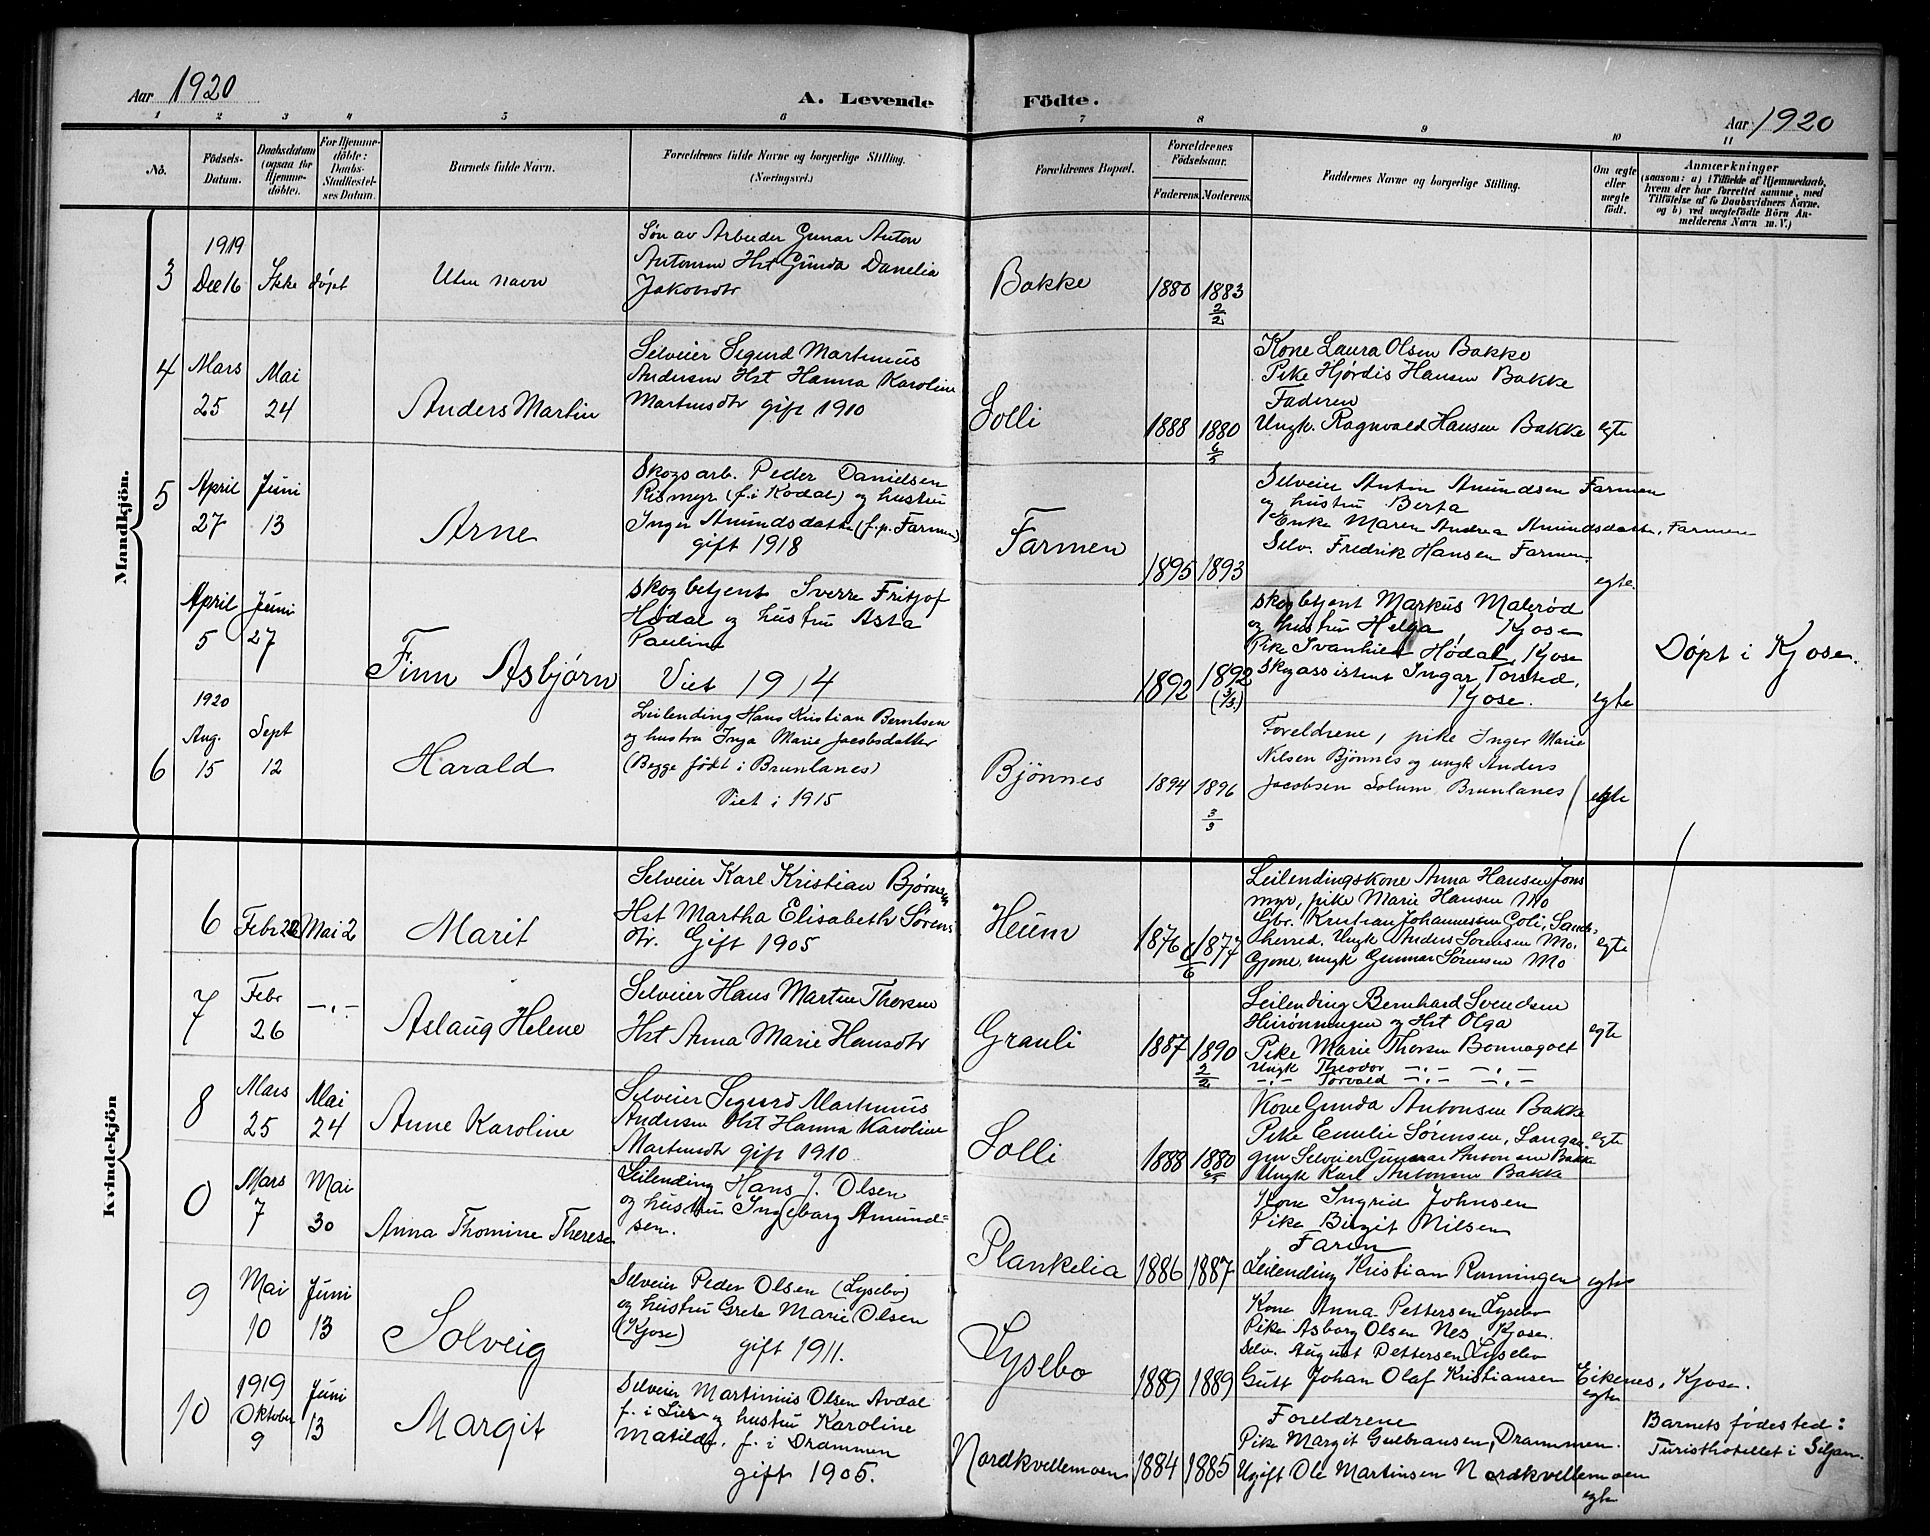 Aar 1920
A. Levende
Födte.
Aar 1920
1 2 3 4 5 6 7 8 9 10 11
No.
Födsels-
Datum.
Daabsdatum
(ogsaa for
Hjemme-
døbte).
For Hjemme-
döbte:
Daabs-
Stadfæstel-
ses Datum.
Barnets fulde Navn.
Forældrenes fulde Navne og borgerlige Stilling.
(Næringsvei.)
Forældrenes Bopæl.
Forældrenes
Födselsaar.
Faderens. Moderens.
Faddernes Navne og borgerlige Stilling.
Om ægte
eller
uægte
født.
Anmærkninger
(saasom: a) i Tilfælde af Hjemmedaab,
hvem der har forrettet samme, med
Tilföielse af to Daabsvidners Navne,
og b) ved uægtefödte Börn An-
melderens Navn m. V.)
Mandkjön.
3
1919
Dec 16
Ikke døpt
Uten navn
Søn av Arbeider Gunar Anton
Antonsen Hst Gunda Danelia
Jakobsdtr
Bakke
1880 1883
2/2
4
Mars
25
Mai
24
Anders Martin
Selveier Sigurd Martinius
Andersen Hst Hanna Karoline
Martinsdtr gift 1910
Solli
1888 1880
6/5
Kone Laura Olsen Bakke
Pike Hjørdis Hansen Bakke
Faderen
Ungk. Ragnvald Hansen Bakke
egte
5
April
27
Juni
13
Arne
Skogsarb. Peder Danielsen
Rismyr (f. i Kodal) og hustru
Inger Amundsdatter (f. p. Farmen)
gift 1918
Farmen
1895 1893
Selveier Anton Amundsen Farmen
og hustru Berta
Enke Maren Andrea Amundsdatt. Farmen
Selv. Fredrik Hansen Farmen
egte.
April
5
Juni
27
Finn Asbjørn
Skogbetjent Sverre Fritjof
Hødal og hustru Asta
Pauline
Viet 1914
1892 1892
(3/3.)
Skogbetjent Markus Malerød
og hustru Helga Kjose
Pike Svanhild Hødal, Kjose
Skogassistent Ingar Torsted,
Kjose.
egte
Døpt i Kjose.
6
1920
Aug.
15
Sept
12
Harald
Leilending Hans Kristian Berntsen
og hustru Inga Marie Jacobsdatter
(Begge født i Brunlanes)
Viet i 1915
Bjönnes
1894 1896
3/3
Foreldrene, pike Inger Marie
Nilsen Bjönnes og ungk Anders
Jacobsen Solum Brunlanes
egte
Kvindekjön
6
Febr 22
Mai 2
Marit
Selveier Karl Kristian Bjørnsen
Hst Martha Elisabeth Sørens
dtr. Gift 1905
Heum
1876 1877
6/6
Leilendingskone Anna Hansen Jons
myr, pike Marie Hansen Mo
Gbr. Kristian Johannessen Goli, Sande-
herred. Ungk Anders Sørensen Mo.
Gjone, ungk Gunnar Sørensen Mo
egte
7
Febr
26
-"-
Aslaug Helene
Selveier Hans Martin Thorsen
Hst Anna Marie Hansdtr
Grauli
1887 1890
2/2
Leilending Bernhard Svendsen
Heirønningen og Hst Olga
Pike Marie Thorsen Bonnegolt
Ungk Theodor -"- -"-
-"- Torvald -"- -"-
egte
8
Mars
25
Mai
24
Anne Karoline
Selveier Sigurd Martinius
Andersen Hst Hanna Karoline
Martinsdtr gift 1910
Solli
1888 1880
6/5
Kone Gunda Antonsen Bakke
Pike Emilie Sørensen, Langan-
gen Selveier Gunnar Antonsen Bakke
Ungk Karl Antonsen Bakke
egte
0
Mars
7
Mai
30
Anna Thomine Therese
Leilending Hans J. Olsen
og hustru Ingeborg Amund=
sen.
Plankelia
1886 1887
Kone Ingrid Johnsen
Pike Birgit Nilsen
Faren
Leilending Kristian Rønningen
egte
9
Mai
10
Juni
13
Solveig
Selveier Peder Olsen (Lysebo)
og hustru Grete Marie Olsen
(Kjose) gift 1911.
Lysebo
1889 1889
Kone Anna Pettersen Lysebo
Pike Asborg Olsen Nes, Kjose.
Selv. August Pettersen Lysebo
Gutt Johan Olaf Kristiansen Eikenes, Kjose.
egte
10
1919
Oktober
9
Juni
13
Margit
Selveier Martinius Olsen Avdal
f. i Lier og hustru Karoline
Matilde, f. i Drammen
gift 1905.
Nordkvellemoen
1884 1885
Foreldrene
Pike Margit Gulbransen, Drammen.
Ugift Ole Martinsen Nordkvellemoen
egte
Barnets fødested:
Turisthotellet i Siljan.